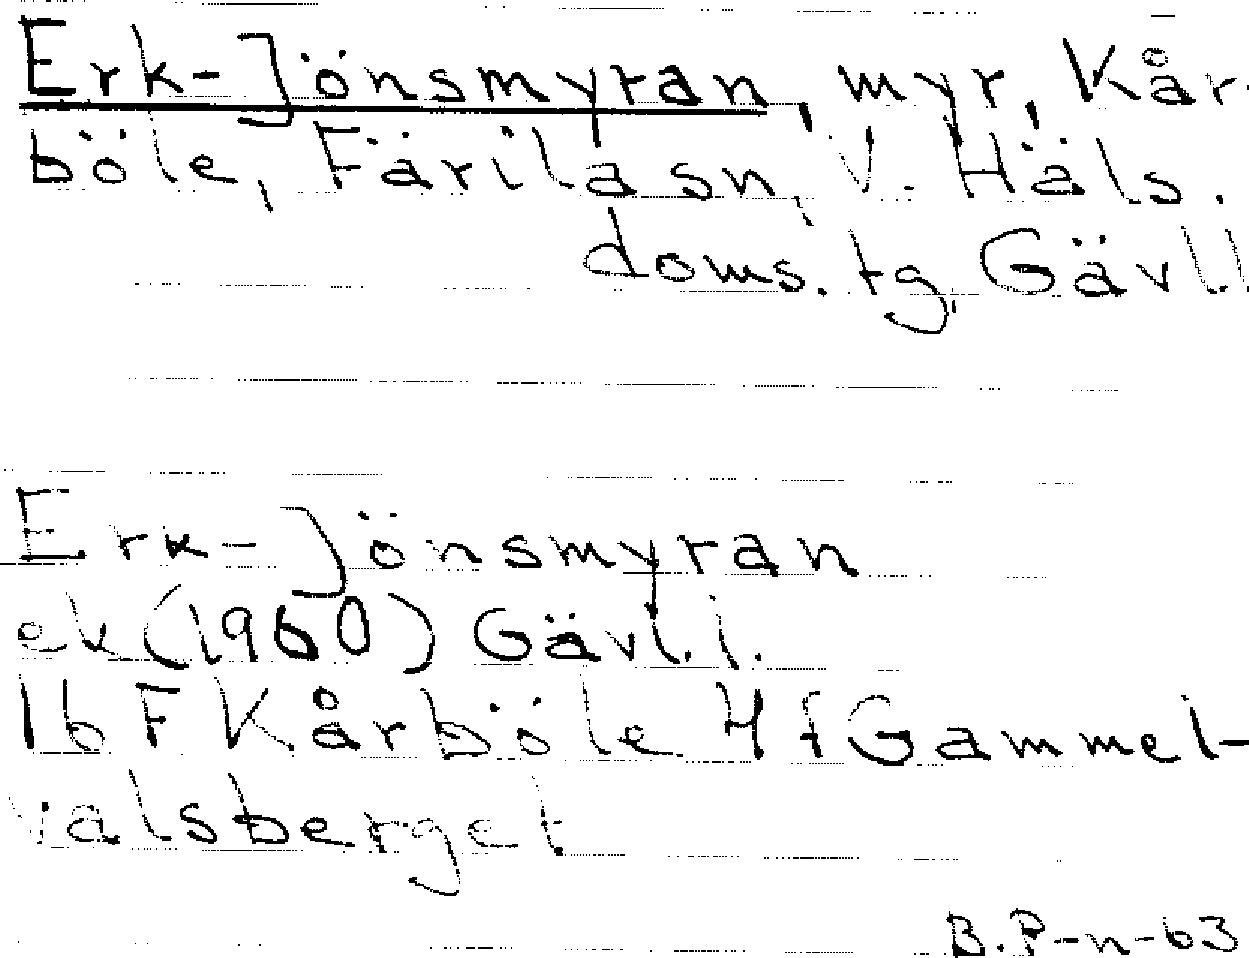 Erk-Jönsmyran, myr, Kår-
böle, Färila sn, V. Häls.
doms. tg, Gävl.l
Erk-Jönsmyran
ek (1960) Gävl. l.
16 F Kårböle 4 f Gammel-
valsberget
B.P-n-63